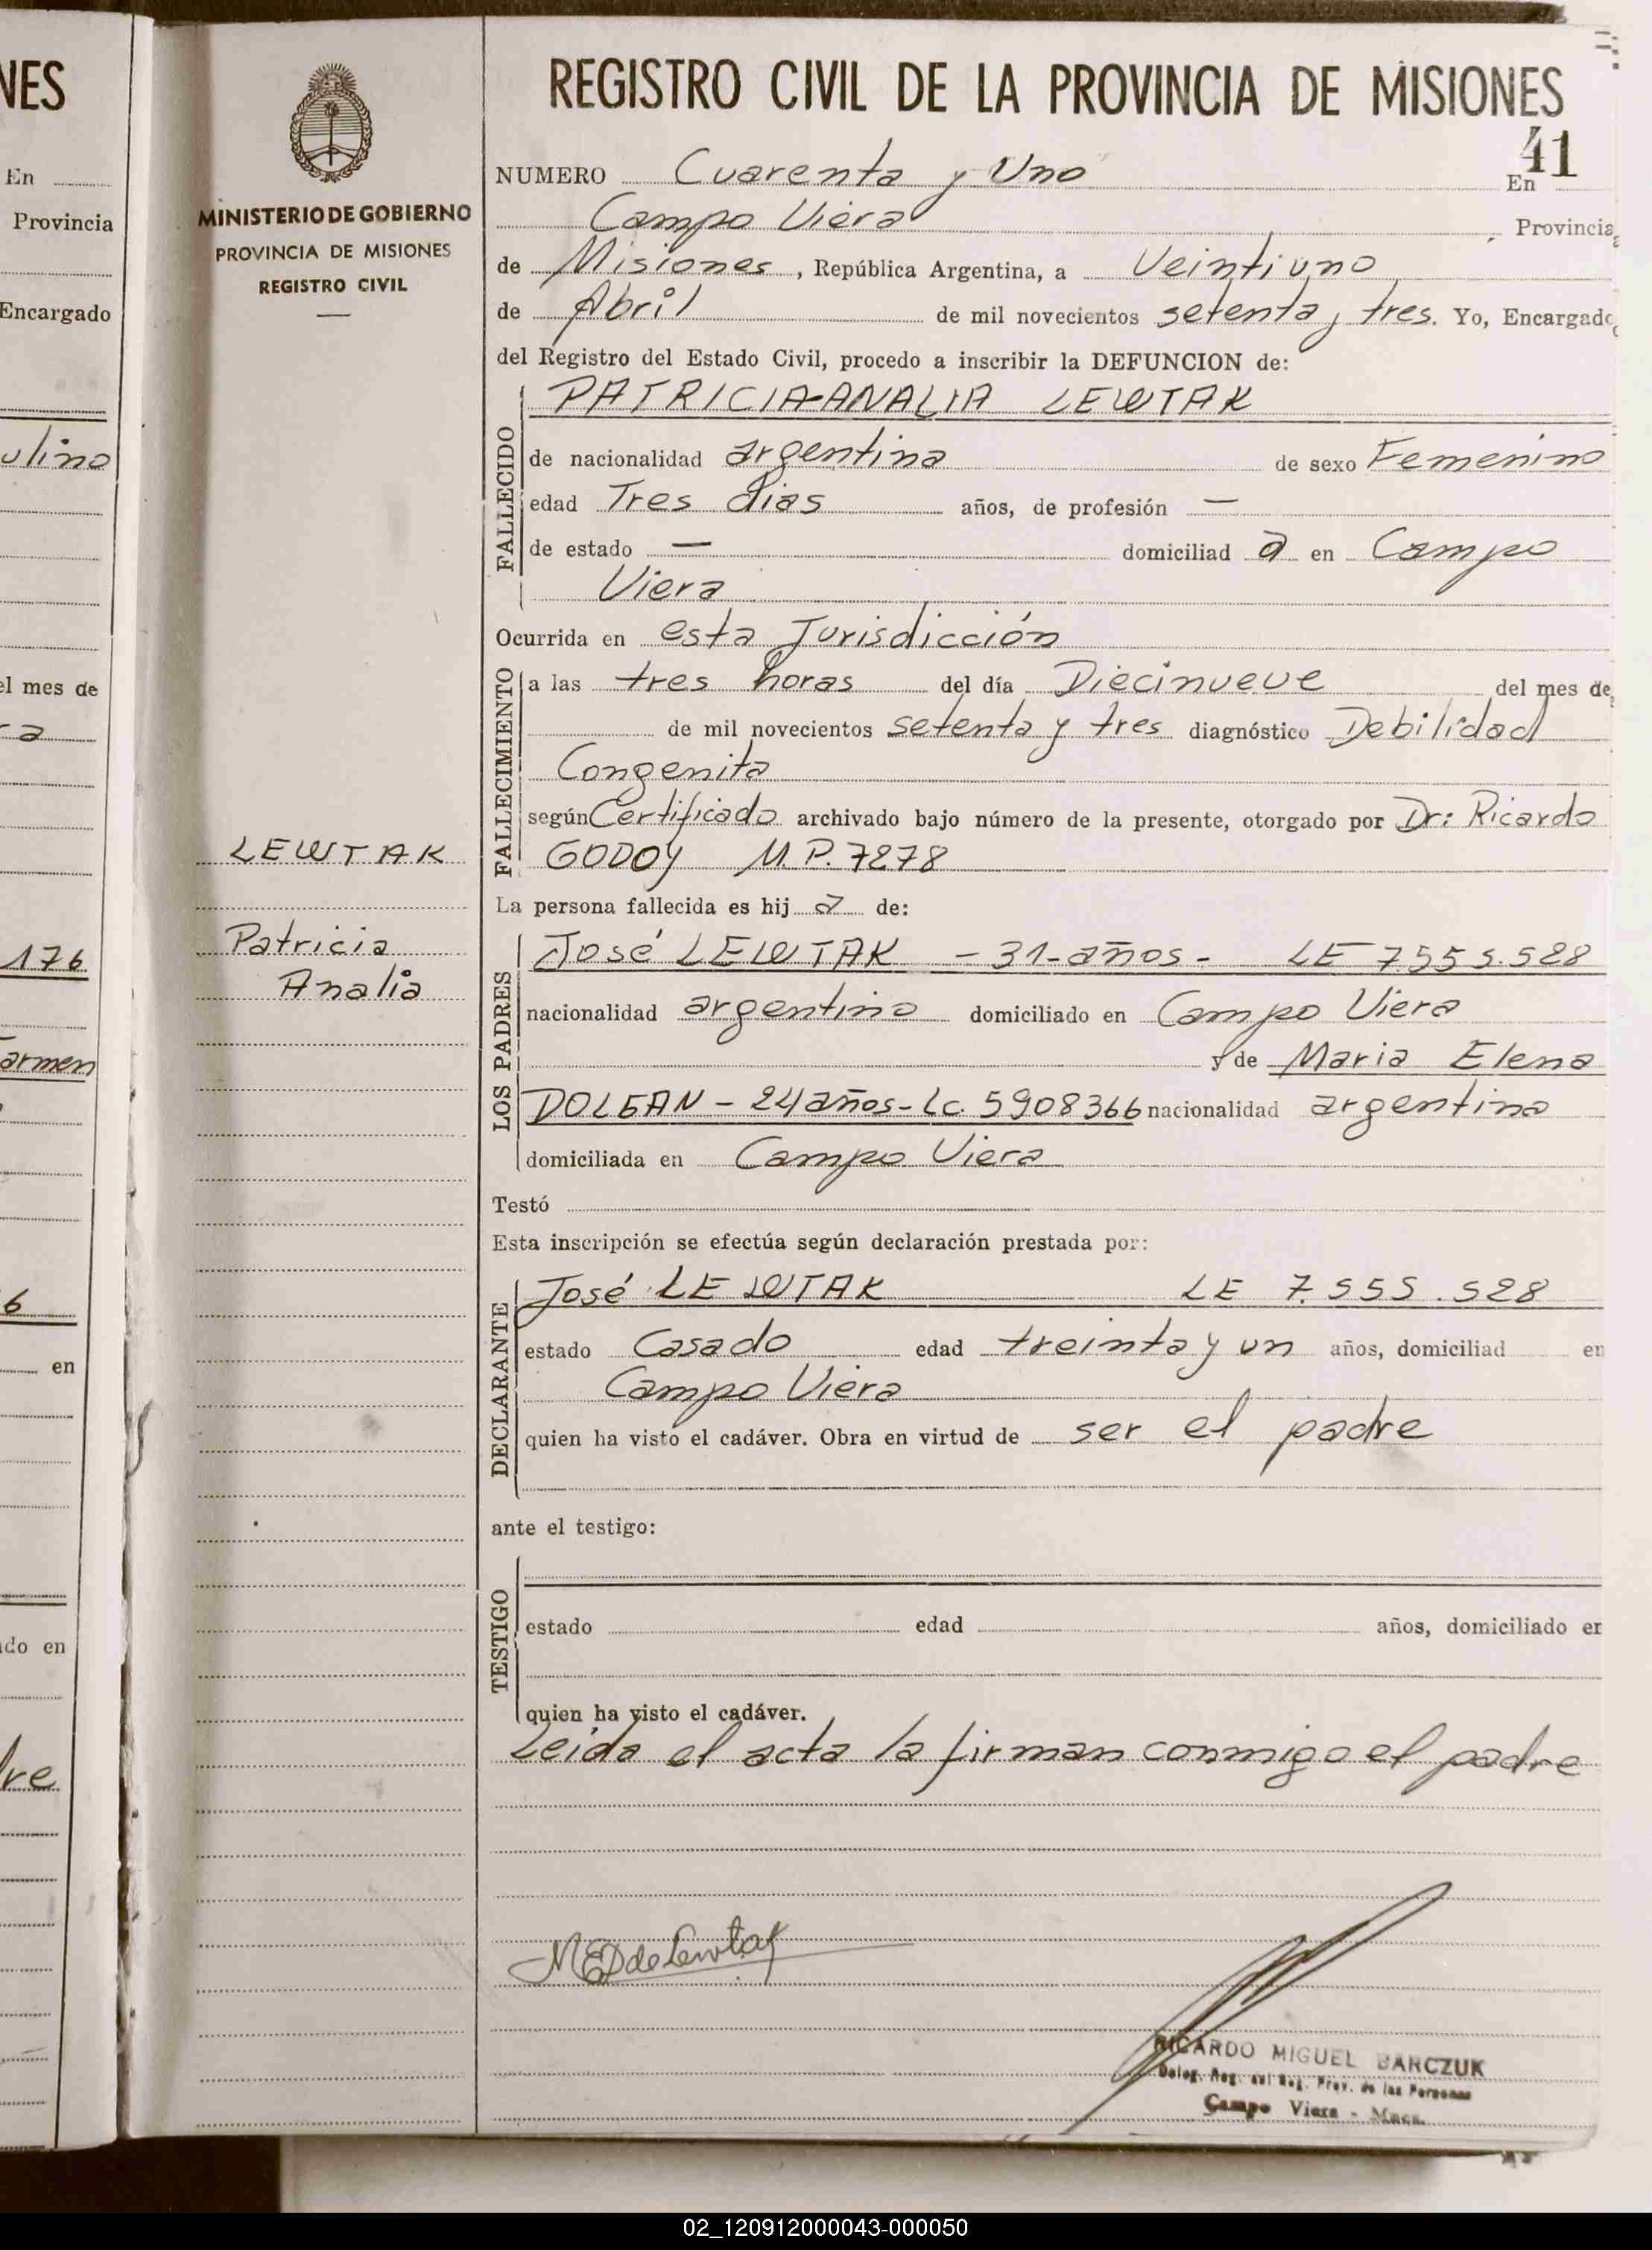 NES
En
Provincia
Encargado
ulino
el mes de
ra
176
armen
6
en
ado en
dre
MINISTERIO DE GOBIERNO
PROVINCIA DE MISIONES
REGISTRO CIVIL
LEWTAK
Patricia
Analia
REGISTRO CIVIL DE LA PROVINCIA DE MISIONES
41
NUMERO Cuarenta y Uno En
Campo Viera, Provincia
de Misiones, República Argentina, a Veintiuno
de Abril de mil novecientos setenta y tres. Yo, Encargado
del Registro del Estado Civil, procedo a inscribir la DEFUNCION de:
FALLECIDO
PATRICIA-ANALIA LEWTAK
de nacionalidad argentina de sexo Femenino
edad Tres dias años, de profesión —
de estado — domiciliad a en Campo
Viera
Ocurrida en esta Jurisdicción
FALLECIMIENTO
a las tres horas del día Diecinueve del mes de
de mil novecientos setenta y tres diagnóstico Debilidad
Congenita
según Certificado archivado bajo número de la presente, otorgado por Dr: Ricardo
GODOY M.P. 7278
La persona fallecida es hij a de:
LOS PADRES
José LEWTAK - 31-años- LE 7.555.528
nacionalidad argentino domiciliado en Campo Viera
y de Maria Elena
DOLGAN - 24 años - Lc. 5908366 nacionalidad argentina
domiciliada en Campo Viera
Testó
Esta inscripción se efectúa según declaración prestada por:
DECLARANTE
José LEWTAK LE 7.555.528
estado Casado edad treinta y un años, domiciliad en
Campo Viera
quien ha visto el cadáver. Obra en virtud de ser el padre
ante el testigo:
TESTIGO
estado edad años, domiciliado en
quien ha visto el cadáver.
Leida el acta la firman conmigo el padre
MED de Lewtak
RICARDO MIGUEL BARCZUK
Deleg. Reg. del Reg. Prov. de las Personas
Campo Viera - Mnes.
02_120912000043-000050